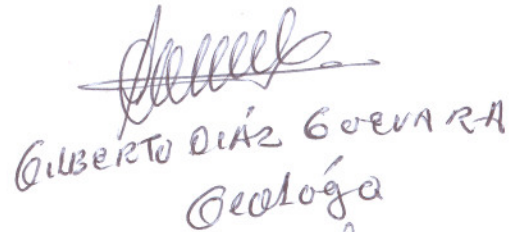 GILBERTO DIÁZ GUEVARA
Geológo